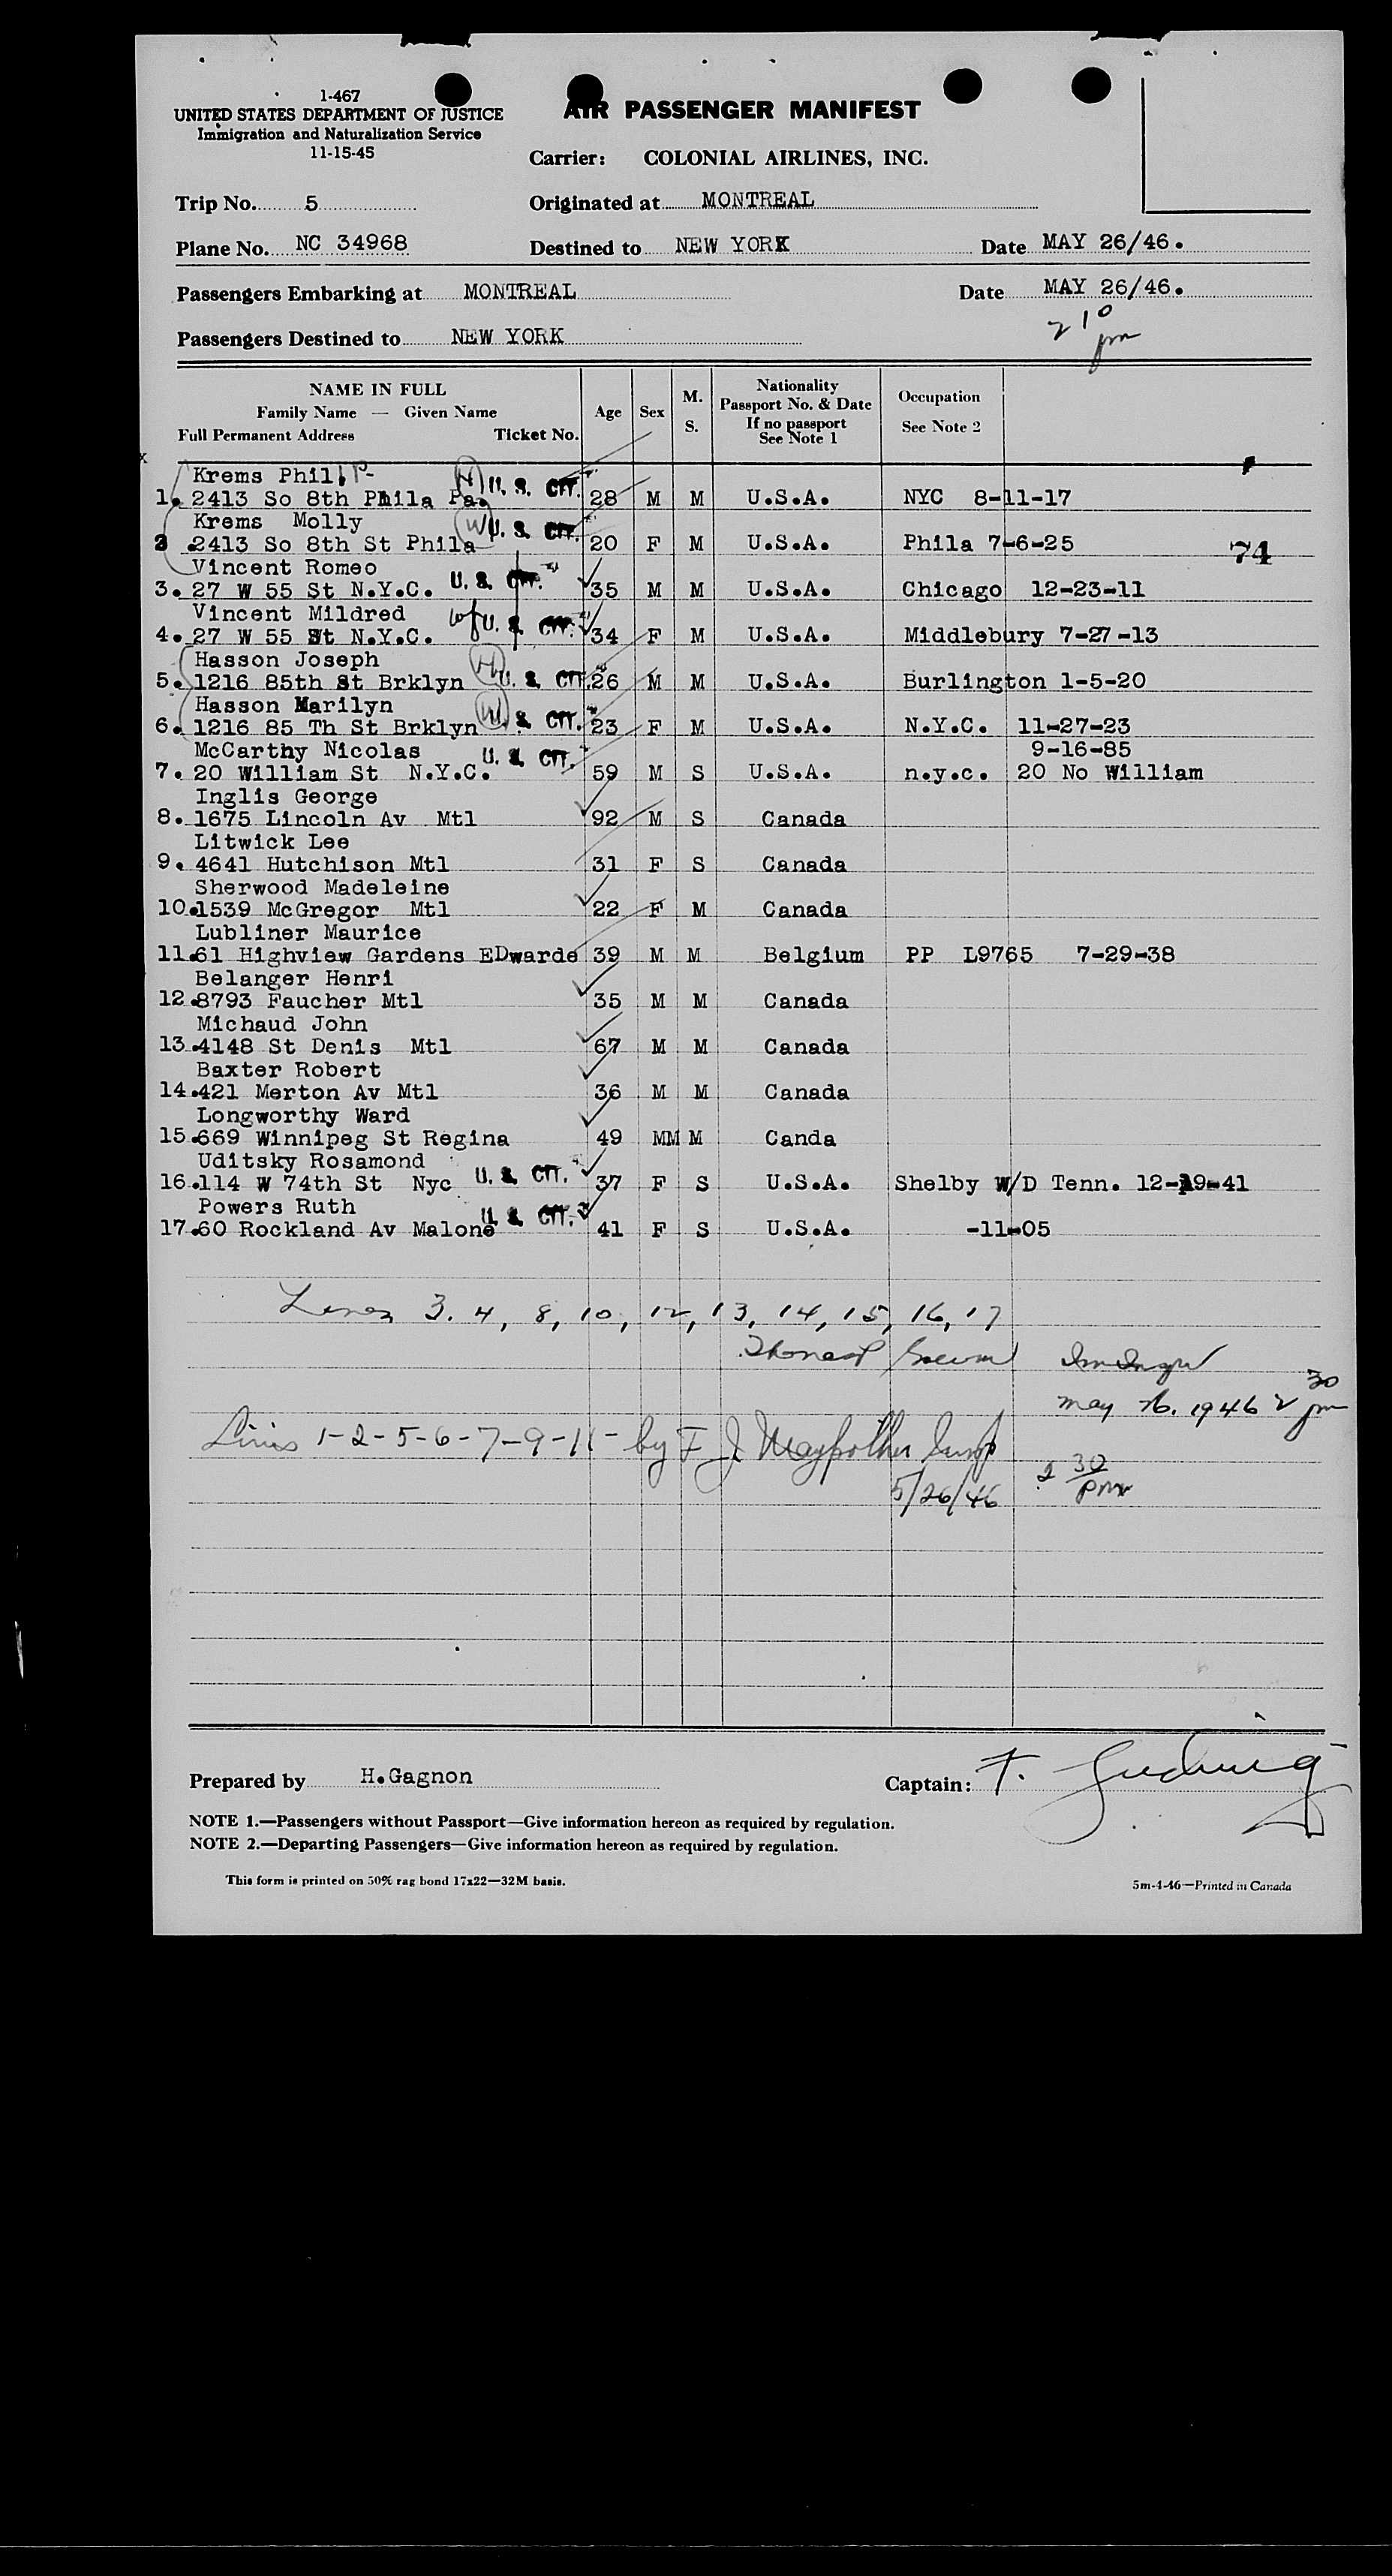 1-467
UNITED STATES DEPARTMENT OF JUSTICE
Immigration and Naturalization Service
11-15-45
AIR PASSENGER MANIFEST
Carrier: COLONIAL AIRLINES, INC.
Trip No. 5 Originated at MONTREAL
Plane No. NC 34968 Destined to NEW YORK Date MAY 26/46.
Passengers Embarking at MONTREAL Date MAY 26/46.
2 10 pm
Passengers Destined to NEW YORK
NAME IN FULL
Family Name — Given Name
Full Permanent Address Ticket No.
Age Sex M. S.
Nationality
Passport No. & Date
If no passport
See Note 1
Occupation
See Note 2
x
Krems Philip H U. S. CIT.
1. 2413 So 8th Phila Pa. 28 M M U.S.A. NYC 8-11-17
Krems Molly W U. S. CIT.
2. 2413 So 8th St Phila 20 F M U.S.A. Phila 7-6-25 74
Vincent Romeo U. S. CIT.
3. 27 W 55 St N.Y.C. 35 M M U.S.A. Chicago 12-23-11
Vincent Mildred wf U. S. CIT.
4. 27 W 55 St N.Y.C. 34 F M U.S.A. Middlebury 7-27-13
Hasson Joseph H U. S. CIT.
5. 1216 85th St Brklyn 26 M M U.S.A. Burlington 1-5-20
Hasson Marilyn W U. S. CIT.
6. 1216 85 Th St Brklyn 23 F M U.S.A. N.Y.C. 11-27-23
McCarthy Nicolas U. S. CIT. 9-16-85
7. 20 William St N.Y.C. 59 M S U.S.A. n.y.c. 20 No William
Inglis George
8. 1675 Lincoln Av Mtl 92 M S Canada
Litwick Lee
9. 4641 Hutchison Mtl 31 F S Canada
Sherwood Madeleine
10. 1539 McGregor Mtl 22 F M Canada
Lubliner Maurice
11. 61 Highview Gardens EDwarde 39 M M Belgium PP L9765 7-29-38
Belanger Henri
12. 8793 Faucher Mtl 35 M M Canada
Michaud John
13. 4148 St Denis Mtl 67 M M Canada
Baxter Robert
14. 421 Merton Av Mtl 36 M M Canada
Longworthy Ward
15. 669 Winnipeg St Regina 49 MM M Canda
Uditsky Rosamond U. S. CIT.
16. 114 W 74th St Nyc 37 F S U.S.A. Shelby W/D Tenn. 12-19-41
Powers Ruth U. S. CIT.
17. 60 Rockland Av Malone 41 F S U.S.A. -11-05
Lines 3. 4, 8, 10, 12, 13, 14, 15, 16, 17
May 26. 1946 2 30 pm
Lines 1-2-5-6-7-9-11- by F J
5/26/46 2 30 pm
Prepared by H.Gagnon Captain: F.
NOTE 1.—Passengers without Passport—Give information hereon as required by regulation.
NOTE 2.—Departing Passengers—Give information hereon as required by regulation.
This form is printed on 50% rag bond 17x22—32M basis. 5m-4-46—Printed in Canada